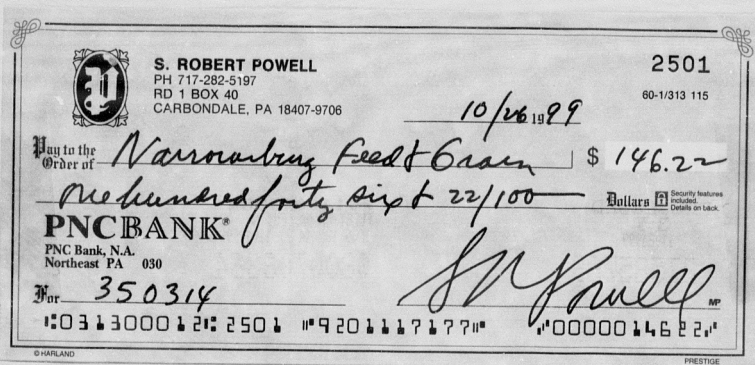 S. ROBERT POWELL
PH 717-282-5197
RD 1 BOX 40
CARBONDALE, PA 18407-9706
2501
60-1/313 115
10/26 1999
Pay to the Order of Narrowsburg Feed & Grain $ 146.22
One hundred forty six & 22/100 Dollars
Security features included. Details on back.
PNCBANK®
PNC Bank, N.A.
Northeast PA 030
For 350314
S R Powell
MP
⑆031300012⑆ 2501 ⑈9201117177⑈ ⑈0000014622⑈
© HARLAND
PRESTIGE